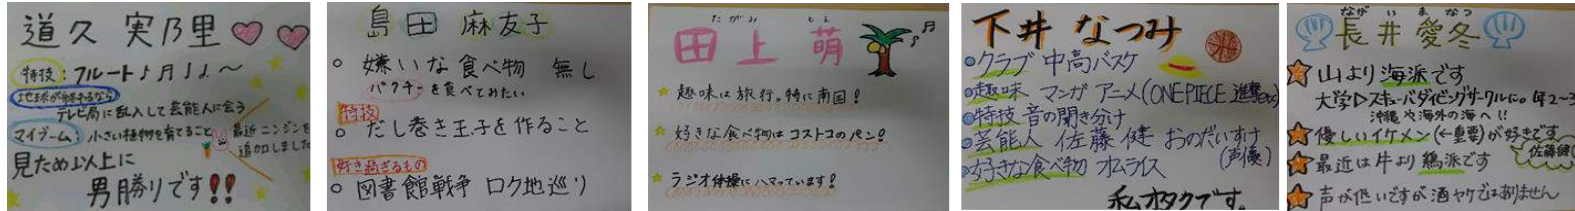 道久 実乃里
特技：フルート
地球が終するなら
テレビ局に乱入して芸能人に会う
マイブーム：小さい植物を育てること
最近ニンジンを
追加しました
見ため以上に
男勝りです!!
島田 麻友子
嫌いな食べ物 無し
パクチーを食べてみたい
特技
だし巻き玉子を作ること
好き過ぎるもの
図書館戦争 ロケ地巡り
たがみ もえ
田上 萌
趣味は旅行。特に南国！
好きな食べ物はコストコのパン！
ラジオ体操にハマっています！
下井 なつみ
クラブ 中高バスケ
趣味 マンガ アニメ(ONE PIECE 進撃
特技 音の聞き分け
芸能人 佐藤 健 おのだいすけ
(声優)
好きな食べ物 オムライス
私オタクです。
ながい まなつ
長井 愛冬
山より海派です
大学▷スキューバダイビングサークルに。年2~3
沖縄や海外の海へ!!
優しいイケメン(←重要)が好きです
佐藤健
最近は牛より鶏派です
声が低いですが酒ヤケではありません